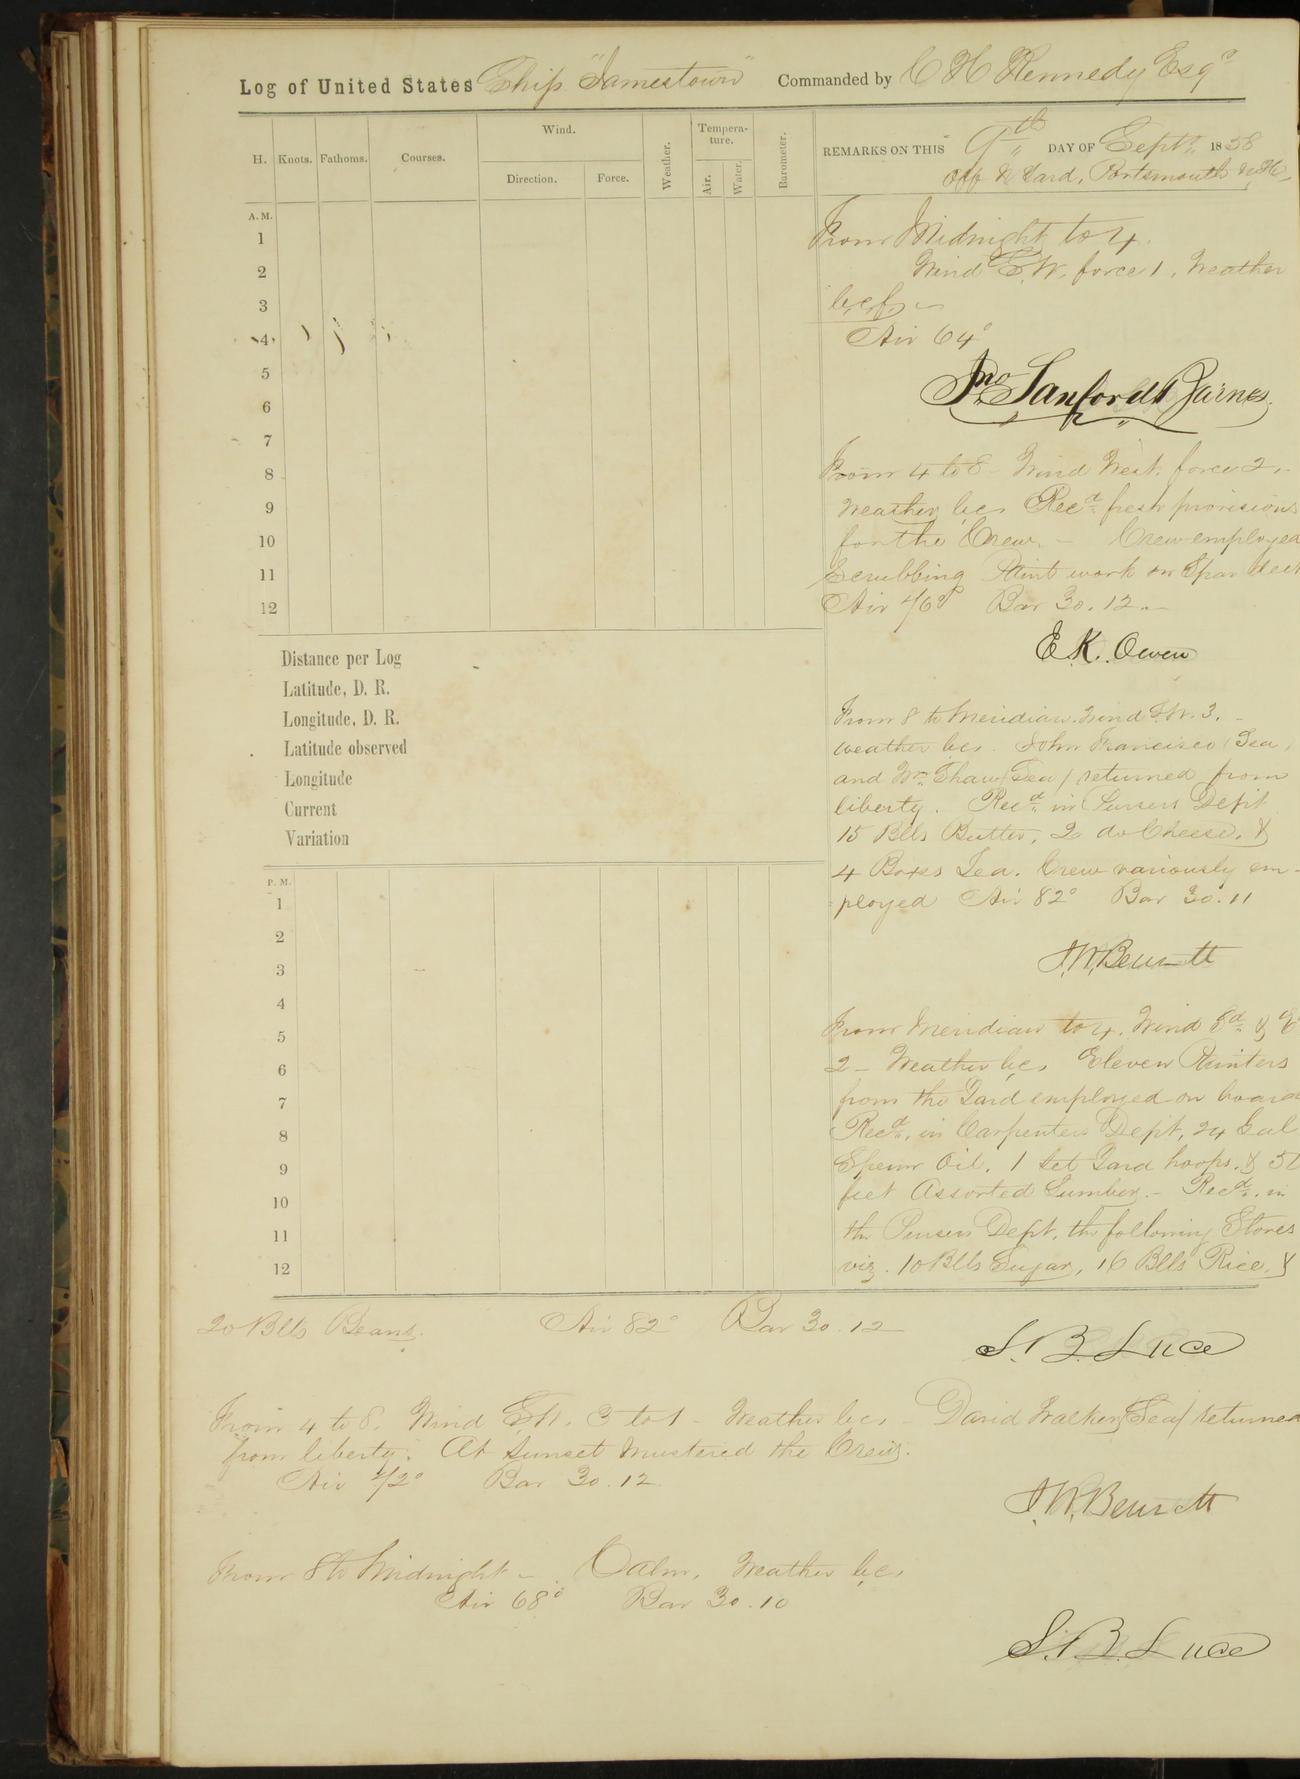 Log of United States Ship "Jamestown" Commanded by C H Kennedy Esqr
H. Knots. Fathoms. Courses. Wind. Direction. Force. Weather. Tempera-ture. Air. Water. Barometer.
REMARKS ON THIS 9th DAY OF Septr 1858
Off N Yard, Portsmouth N.H.
A.M.
1
2
3
4
5
6
7
8
9
10
11
12
From Midnight to 4.
Wind S.W. force 1, Weather
b.c.f. -
Air 64°
Jno. Sanford Barnes.
From 4 to 8 Wind West. force 2,-
Weather b.c. Recd fresh provisions
for the Crew. - Crew employed
Scrubbing Paint work on Spar deck
Air 76° Bar 30.12.-
E. K. Owen
Distance per Log
Latitude, D. R.
Longitude, D. R.
Latitude observed
Longitude
Current
Variation
From 8 to Meridian. Wind S.W. 3. -
weather b.c. John Francisco (Sea)
and Wm Shaw (Sea) returned from
liberty. Recd in Pursers Dept
15 Blls Butter, 2 do Cheese, &
4 Boxes Tea. Crew variously em-
ployed Air 82° Bar 30.11
J.W. Bennett
P.M.
1
2
3
4
5
6
7
8
9
10
11
12
From Meridian to 4. Wind Sd & E
2 - Weather b.c. Eleven Painters
from the Yard employed on board
Recd. in Carpenters Dept, 24 Gal
Sperm Oil, 1 Set Yard hoops, &
feet Assorted Lumber. - Recd. in
the Pursers Dept. the following Stores
viz. 10 Blls Sugar, 16 Blls Rice, &
20 Blls Beans. Air 82° Bar 30.12
S. B. Luce
From 4 to 8. Wind S.W. 3 to 1 - Weather b.c. - David Walker (Sea) returned
from liberty. At Sunset mustered the Crew.
Air 72° Bar 30.12
J.W. Bennett
From 8 to Midnight - Calm, Weather b.c.
Air 68° Bar 30.10
S. B. Luce